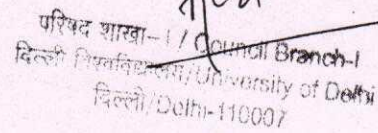 परिषद शाखा-I / Council Branch-I
दिल्ली विश्वविद्यालय/University of Delhi
दिल्ली/Delhi-110007